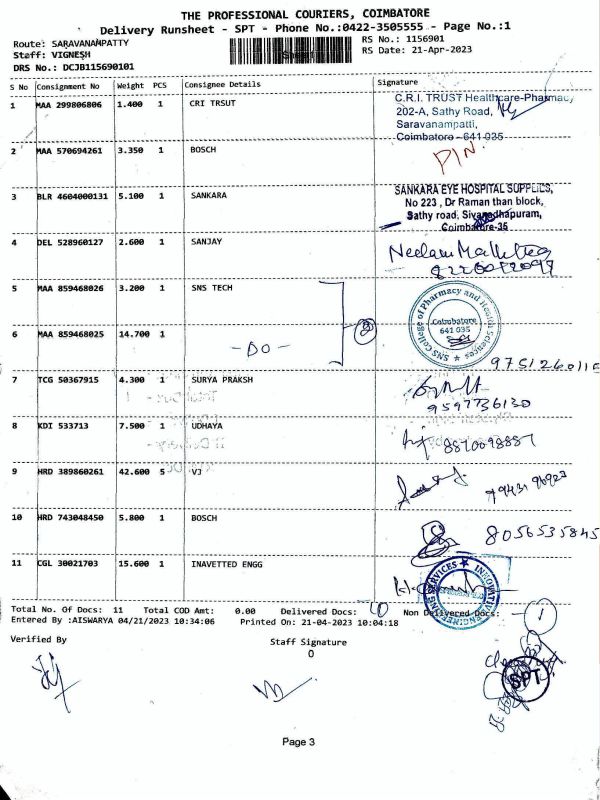 THE PROFESSIONAL COURIERS, COIMBATORE
Delivery Runsheet - SPT - Phone No.:0422-3505555 - Page No.:1
Route: SARAVANAMPATTY
RS No.: 1156901
Staff: VIGNESH
RS Date: 21-Apr-2023
DRS No.: DCJB115690101
S No Consignment No Weight PCS Consignee Details Signature
1 MAA 299806806 1.400 1 CRI TRSUT
C.R.I. TRUST Healthcare-Pharmac,
202-A, Sathy Road,
Saravanampatti,
Coimbatore - 641 035
2 MAA 570694261 3.350 1 BOSCH
3 BLR 4604000131 5.100 1 SANKARA
SANKARA EYE HOSPITAL SUPPLIES,
No 223 , Dr Raman than block,
Sathy road, Sivanadhapuram,
Coimbatore-35
4 DEL 528960127 2.600 1 SANJAY
5 MAA 859468026 3.200 1 SNS TECH
SNS College of Pharmacy and Health Sciences
Coimbatore
641 035
6 MAA 859468025 14.700 1
- DO -
7 TCG 50367915 4.300 1 SURYA PRAKSH
9597736130
8 KDI 533713 7.500 1 UDHAYA
9 HRD 389860261 42.600 5 VJ
10 HRD 743048450 5.800 1 BOSCH
8056535845
11 CGL 30021703 15.600 1 INAVETTED ENGG
Total No. Of Docs: 11 Total COD Amt: 0.00 Delivered Docs: 10 Non Delivered Docs: 1
Entered By :AISWARYA 04/21/2023 10:34:06 Printed On: 21-04-2023 10:04:18
Verified By
Staff Signature
0
SPT
Page 3